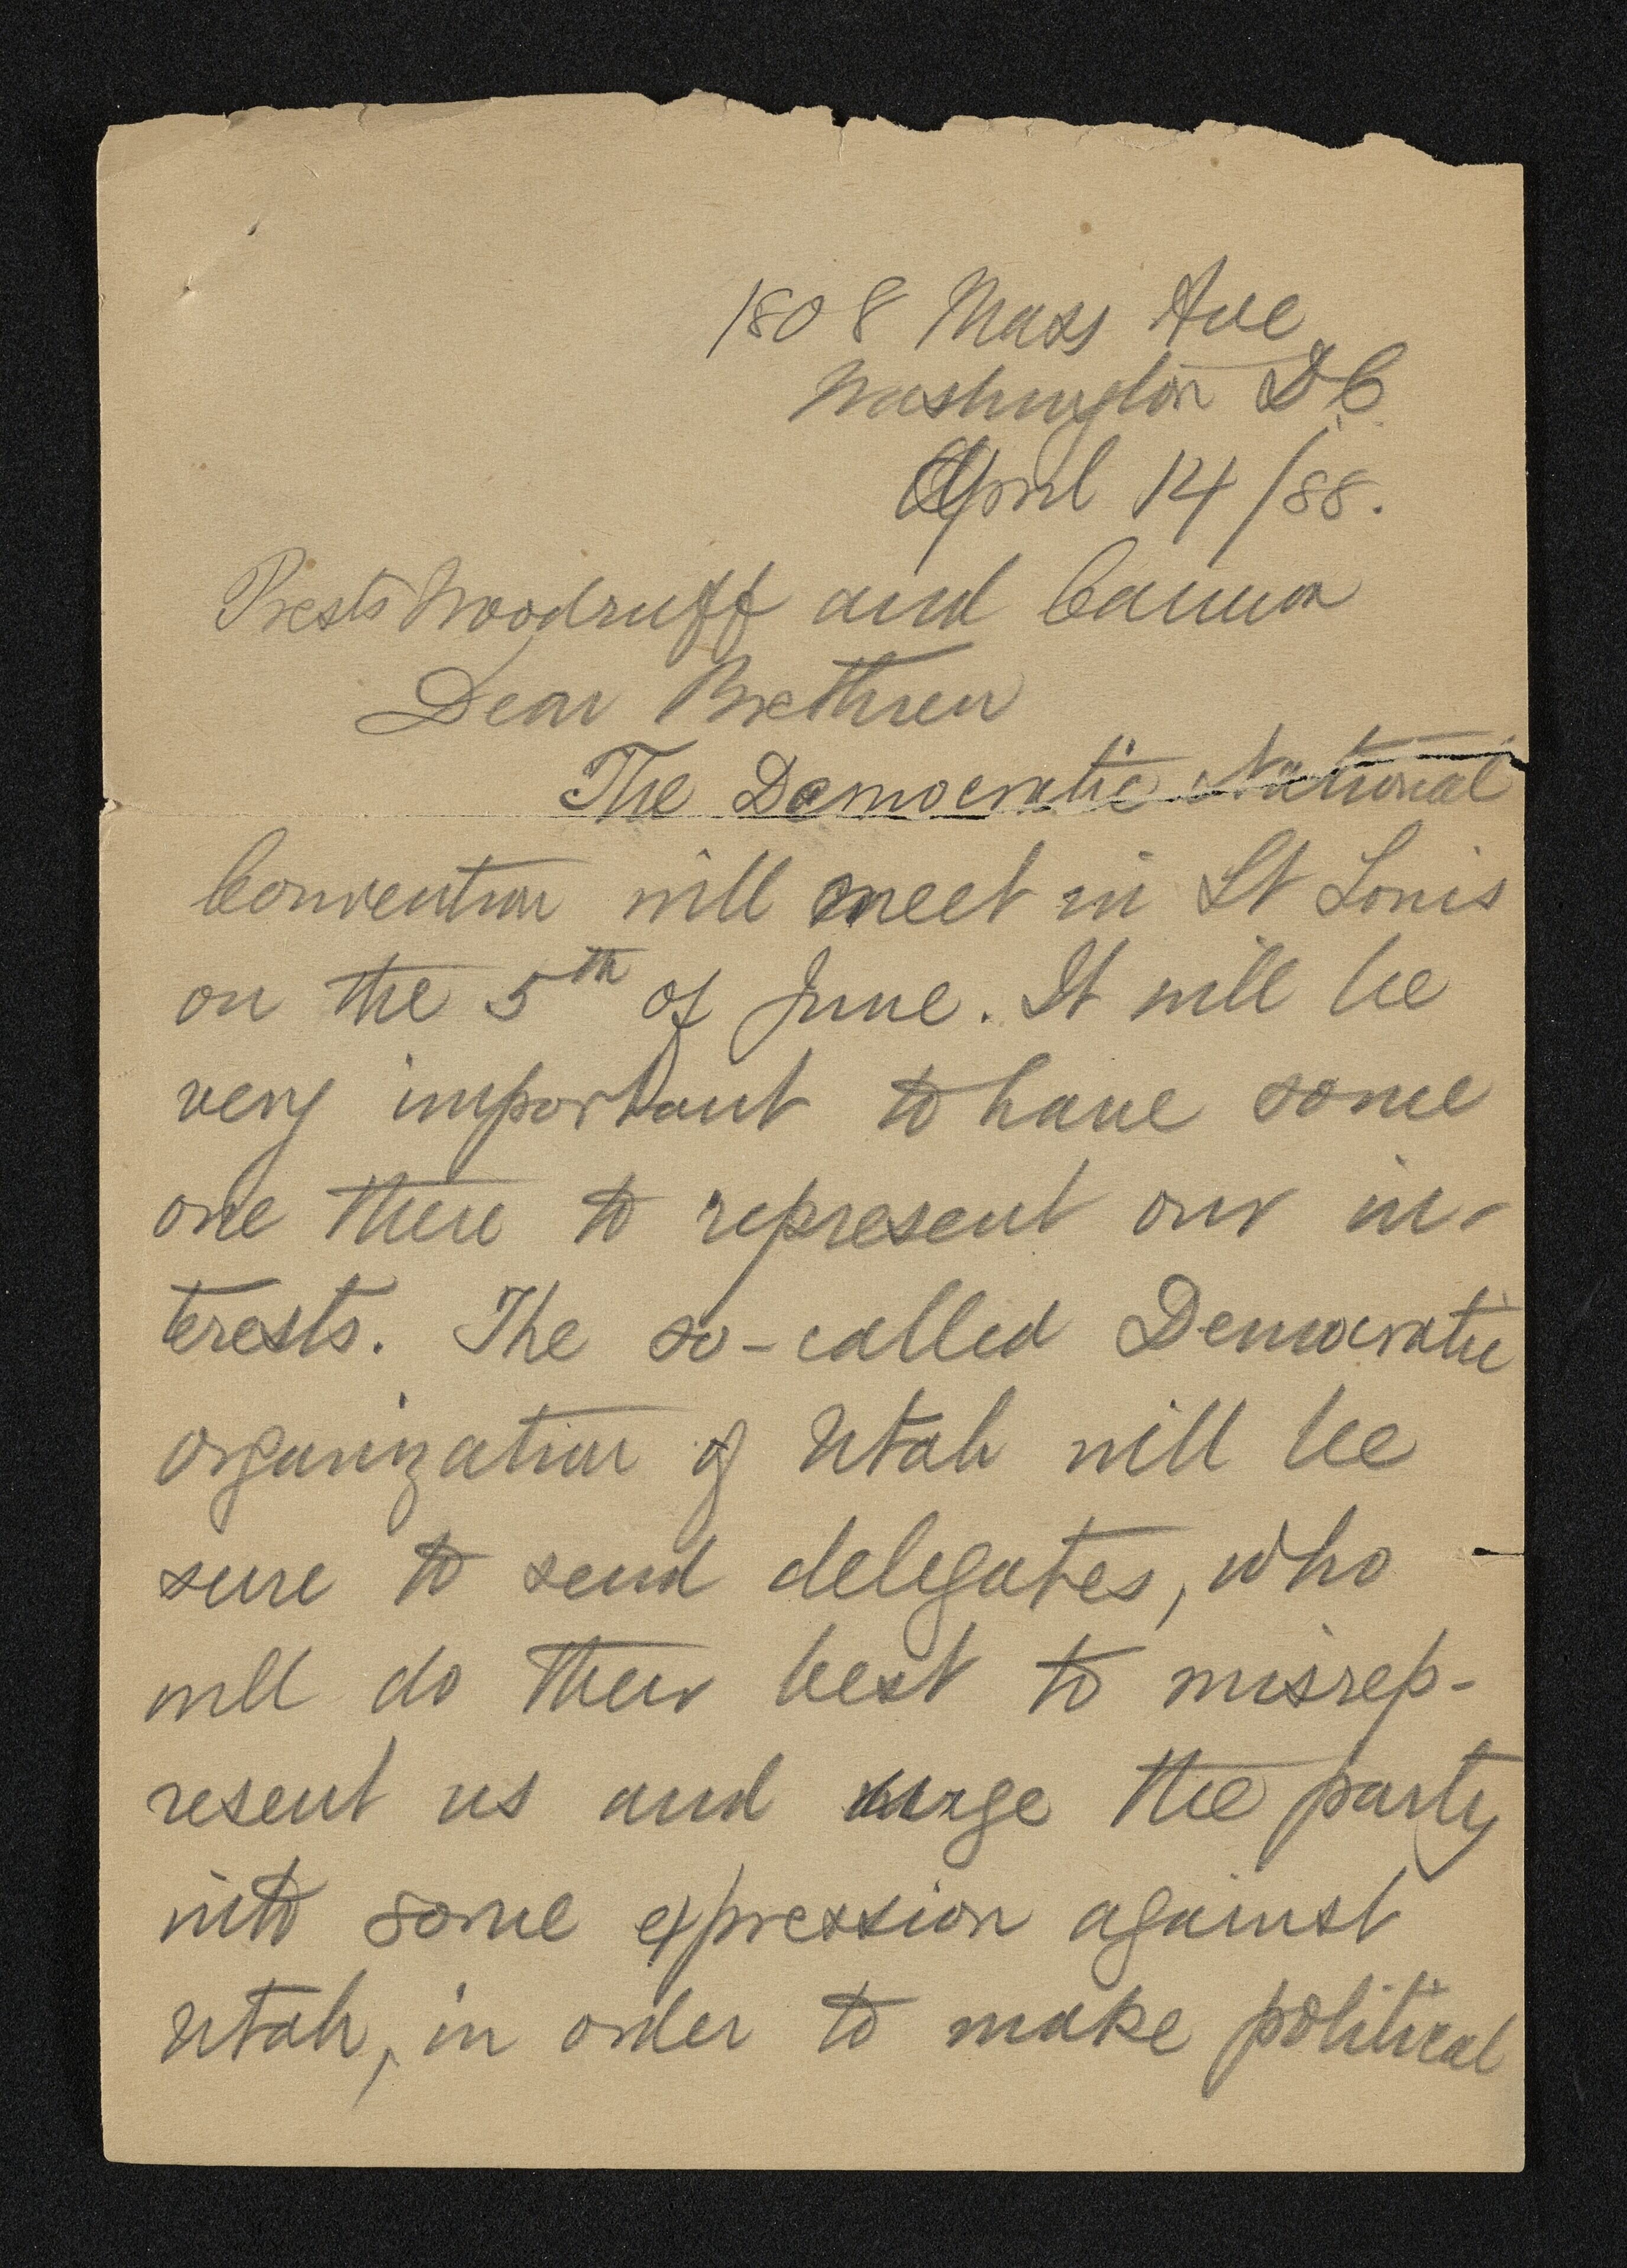 1808 Mass Ave
Washington D.C.
April 14/88.
Prests Woodruff and Cannon
Dear Brethren
The Democratic National
Convention will meet in St Louis
on the 5th of June. It will be
very important to have some
one there to represent our in-
terests. The so-called Democratic
organization of Utah will be
sure to send delegates, who
will do their best to misrep-
resent us and urge the party
into some expression against
Utah, in order to make political